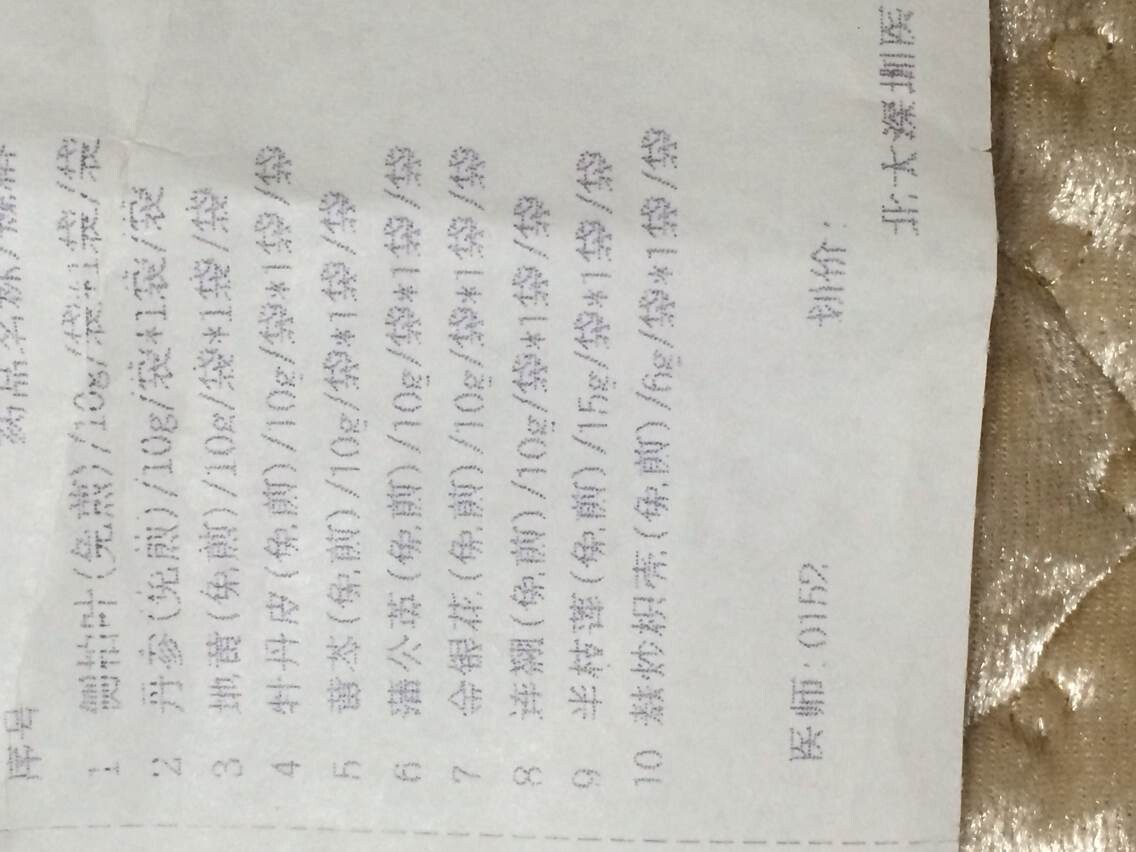 序号 药品名称/规格
1 枇杷叶(免煎)/10g/袋*1袋/袋
2 丹参(免煎)/10g/袋*1袋/袋
3 地黄(免煎)/10g/袋*1袋/袋
4 牡丹皮(免煎)/10g/袋*1袋/袋
5 黄芩(免煎)/10g/袋*1袋/袋
6 蒲公英(免煎)/10g/袋*1袋/袋
7 金银花(免煎)/10g/袋*1袋/袋
8 连翘(免煎)/10g/袋*1袋/袋
9 半枝莲(免煎)/15g/袋*1袋/袋
10 麸炒枳壳(免煎)/6g/袋*1袋/袋
医师:0152 划价:
北大深圳医